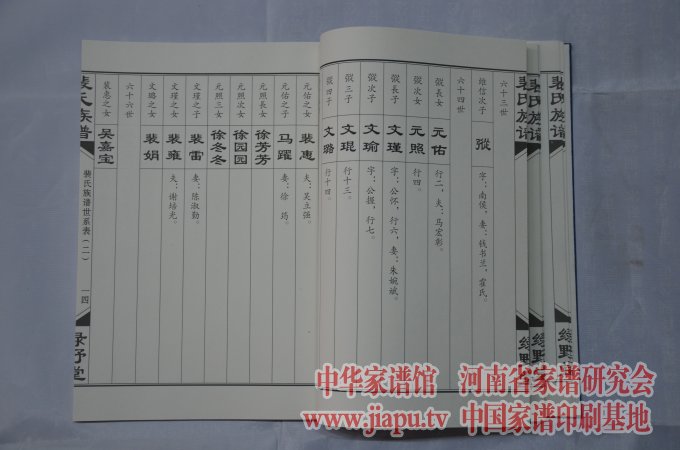 裴氏族谱
裴氏族谱
裴氏族谱
六十三世
维信次子
㧐
字：南侯，妻：钱书兰，霍氏。
六十四世
㧐長女
元佑
行二，夫：马宏彰。
㧐次女
元照
行四。
㧐長子
文瑾
字：公怀，行六，妻：朱婉斌。
㧐次子
文瑜
字：公握，行七。
㧐三子
文琨
行十三。
㧐四子
文璐
行十四。
裴惠
夫：吴立强。
元佑之子
马躍
妻：徐 筠。
元照長女
徐芳芳
元照次女
徐园园
元照之子
徐冬冬
文瑾之子
裴雷
妻：陈淑勤。
文瑾之女
裴雍
夫：谢培光。
文璐之女
裴娟
六十六世
裴惠之女
吴嘉宝
裴氏族谱
裴氏族谱世系表（二）
一四
绿野堂
绿野堂
中华家谱馆 河南省家谱研究会
www.jiapu.tv 中国家谱印刷基地